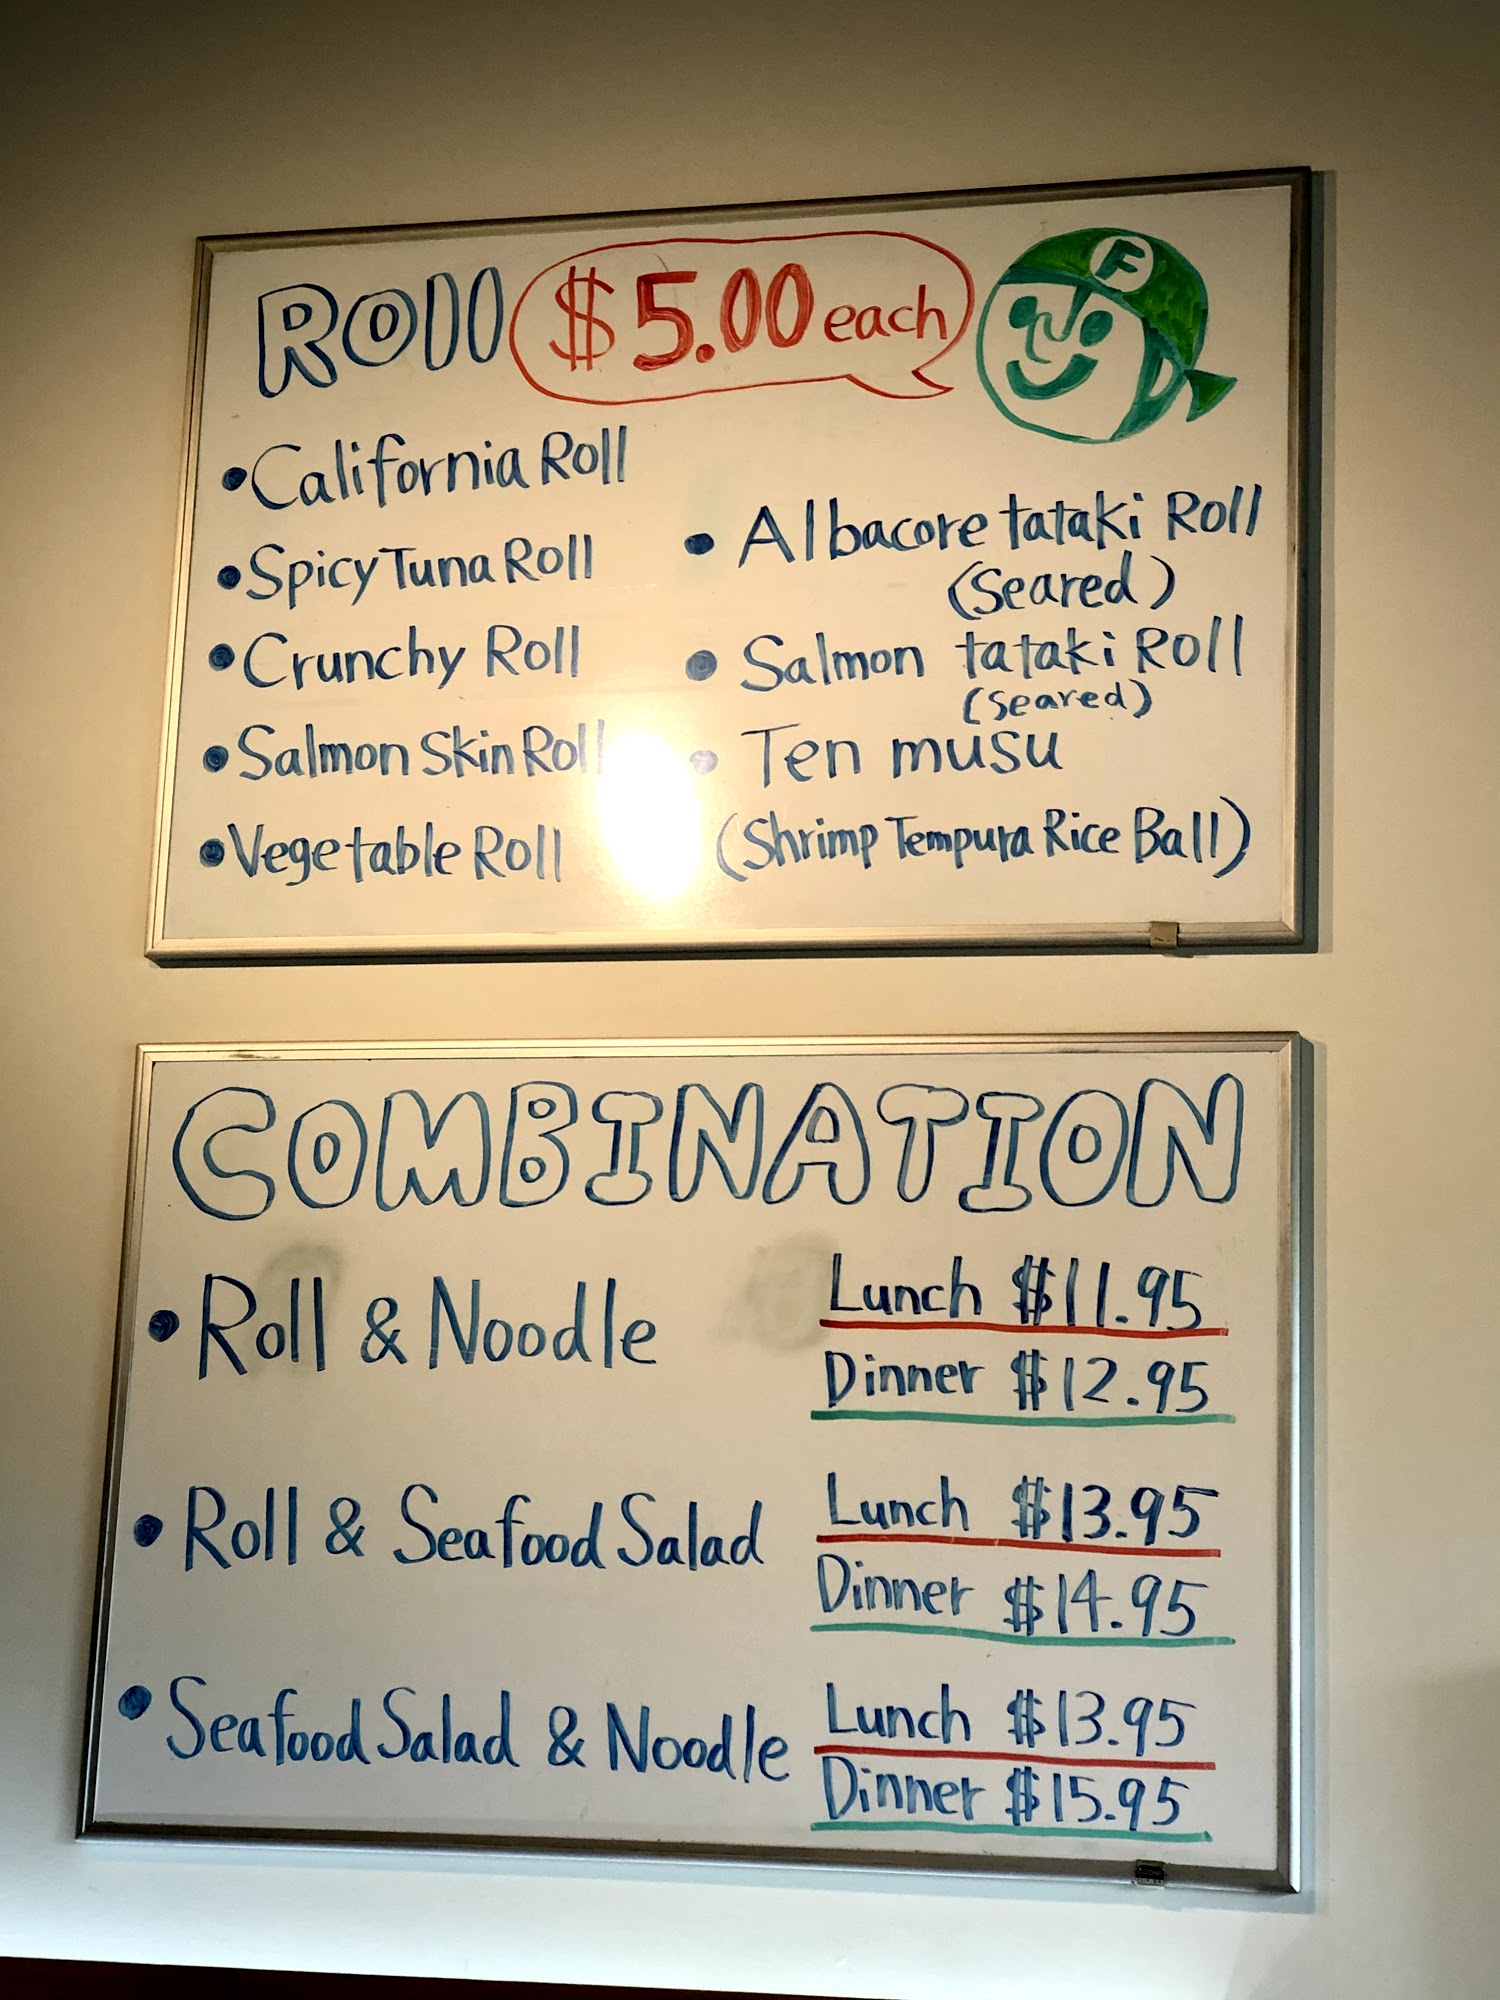 Roll $5.00 each
F
• California Roll
• Spicy Tuna Roll
• Crunchy Roll
• Salmon Skin Roll
• Vegetable Roll
• Albacore tataki Roll
(Seared)
• Salmon tataki Roll
(Seared)
• Ten musu
(Shrimp Tempura Rice Ball)
COMBINATION
• Roll & Noodle
Lunch $11.95
Dinner $12.95
• Roll & Seafood Salad
Lunch $13.95
Dinner $14.95
• Seafood Salad & Noodle
Lunch $13.95
Dinner $15.95